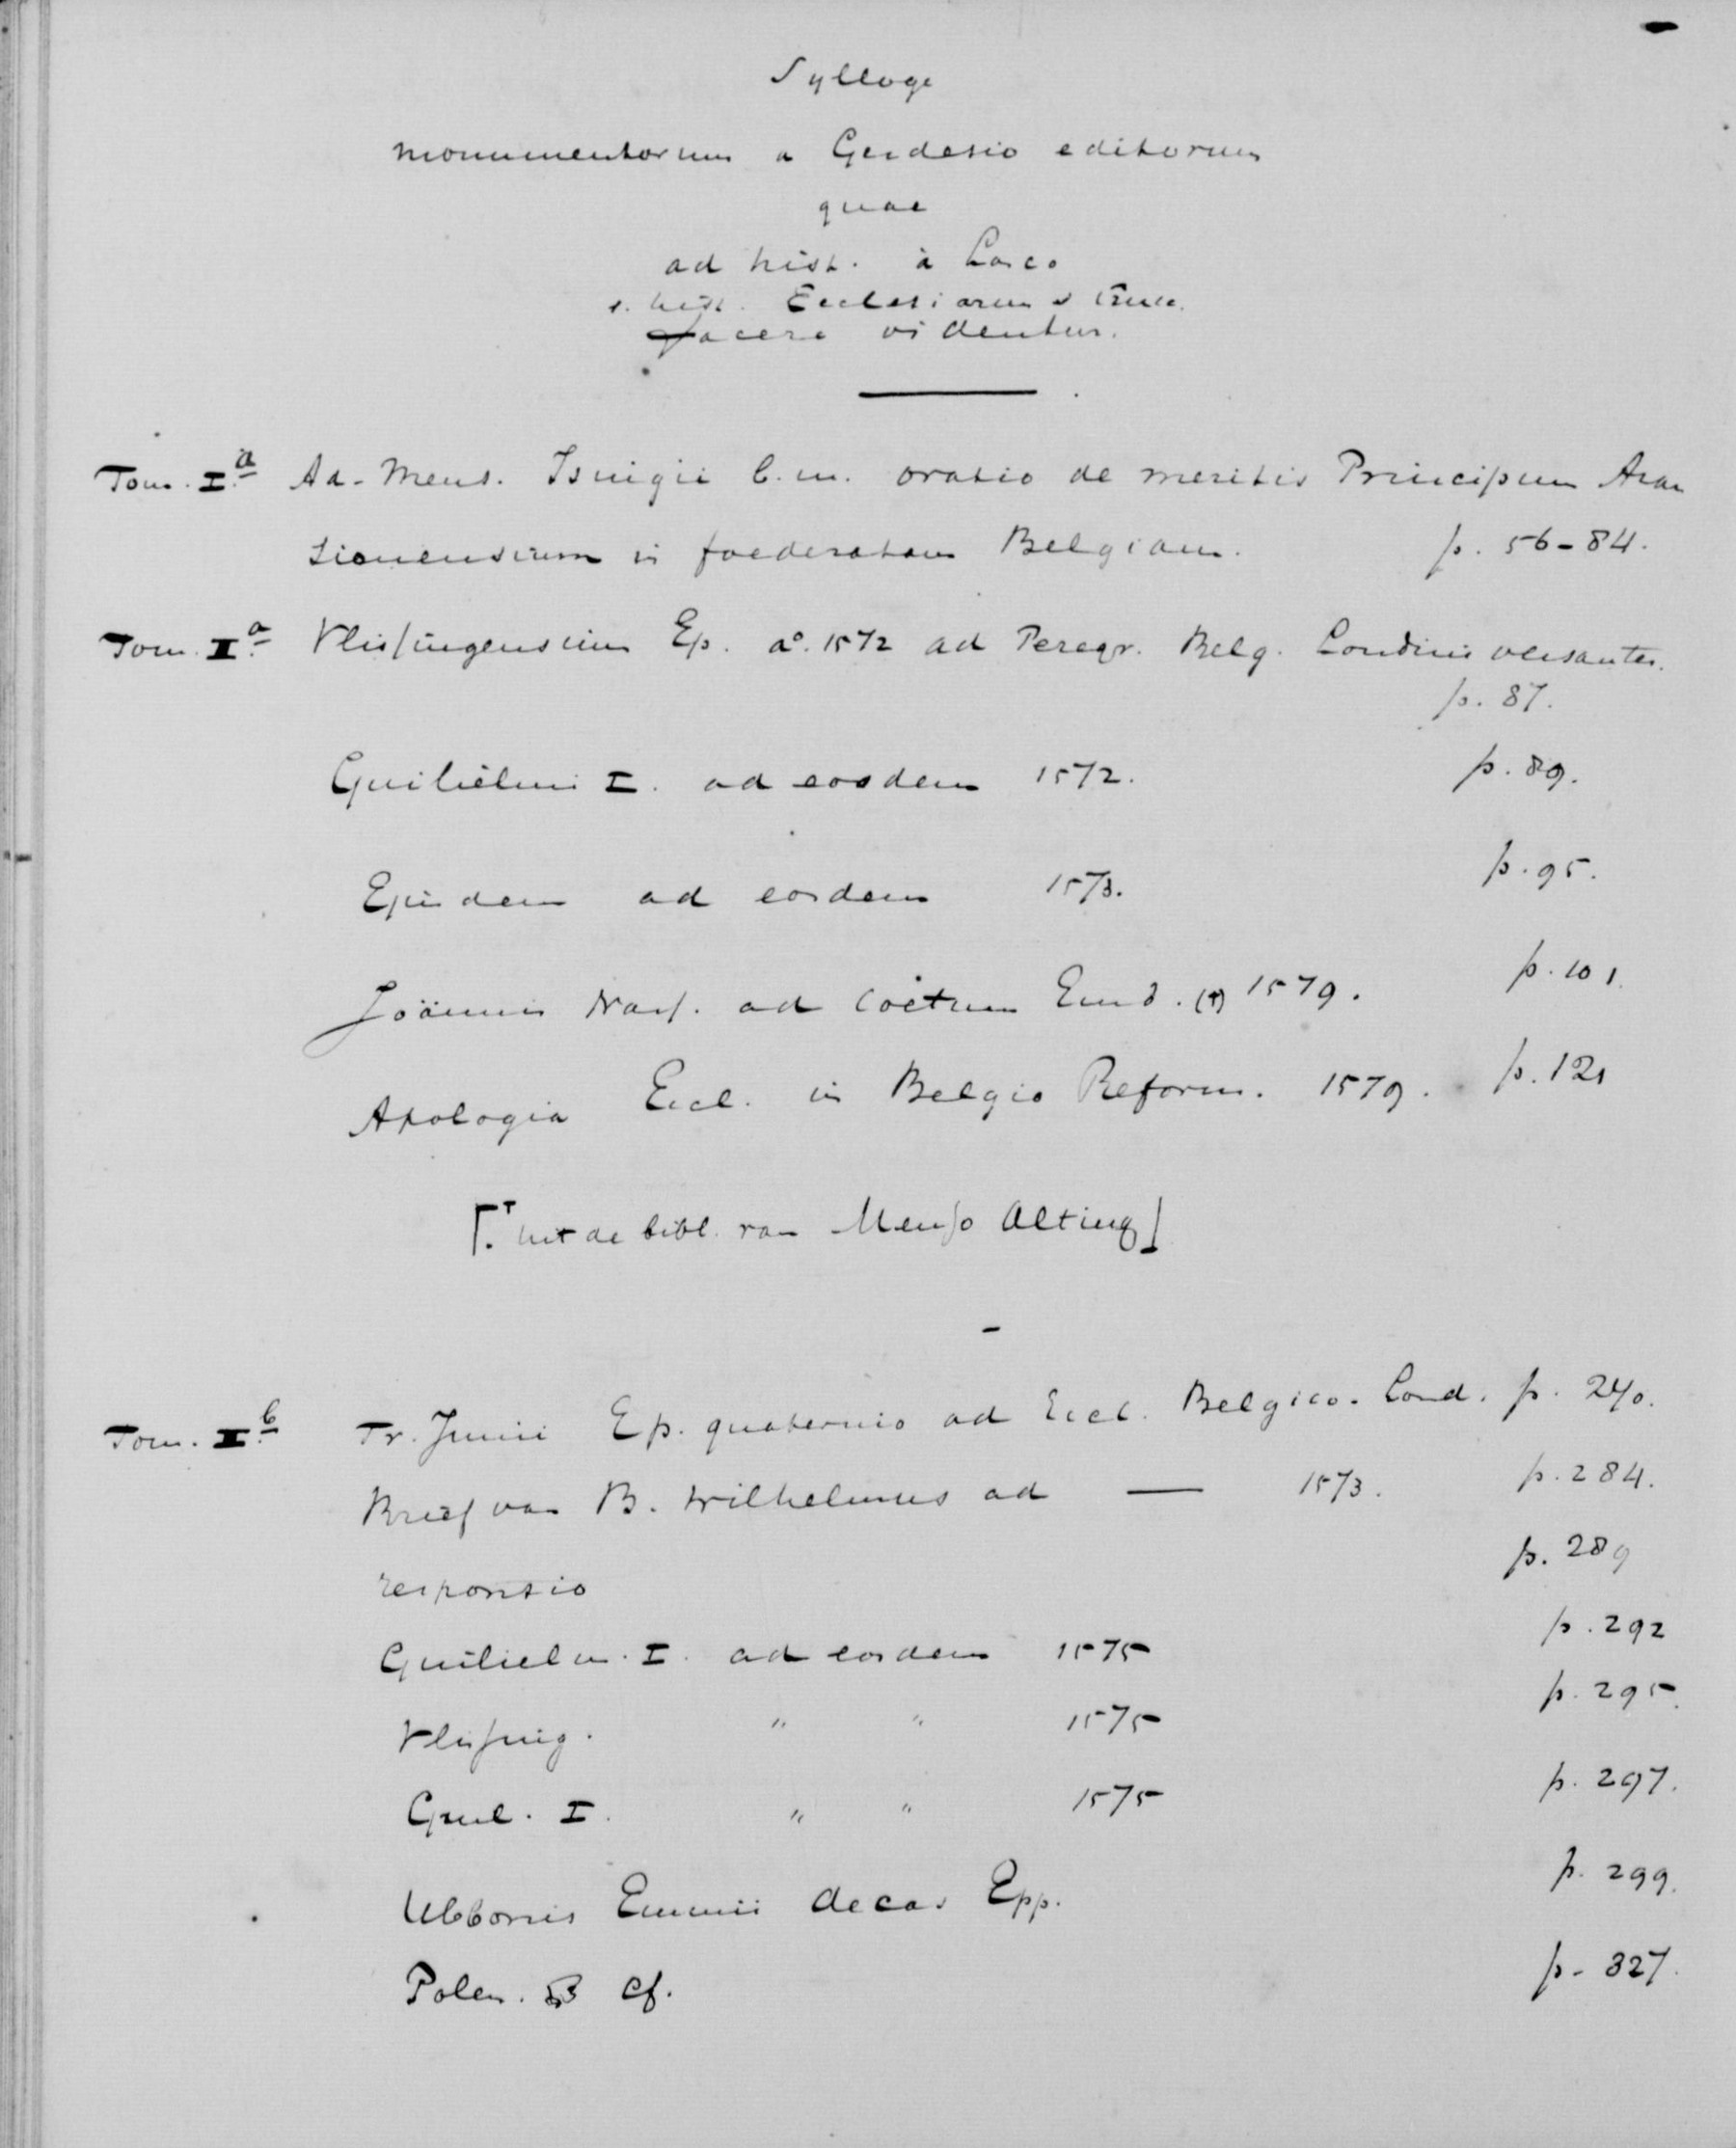 Sylloge
monumentorum a Gerdesio editorum
quae
ad hist. à Lasco
s. hist. Ecclesiarum s
facere videntur.
Tom. I.a Ad. Mens. Isingii b.m. oratio de meritis Principum Arau
sionensium in foederatam Belgiam. p. 56-84.
Tom. I.a Vlissingensium Ep. ao. 1572 ad Peregr. Belg. Londini versantes.
p. 87.
Guilielmi I. ad eosdem 1572. p. 89.
Ejusdem ad eosdem 1573. p. 95.
Joännis Nass. ad Coetum Emd. (†) 1579. p. 101
Apologia Eccl. in Belgio Reform. 1579. p. 121
[† uit de bibl. van Menso Alting]
Tom. I.b Fr. Junii Ep. quaternio ad Eccl. Belgico-Lond. p. 240.
Brief van B. Wilhelmus ad — 1573. p. 284.
responsio p. 289
Guilielm. I. ad eosdem 1575 p. 292
Vlissing. " " 1575 p. 295.
Guil. I. " " 1575 p. 297.
Ubbonis Emmii decas Epp. p. 299.
Polen. cf. p. 327.